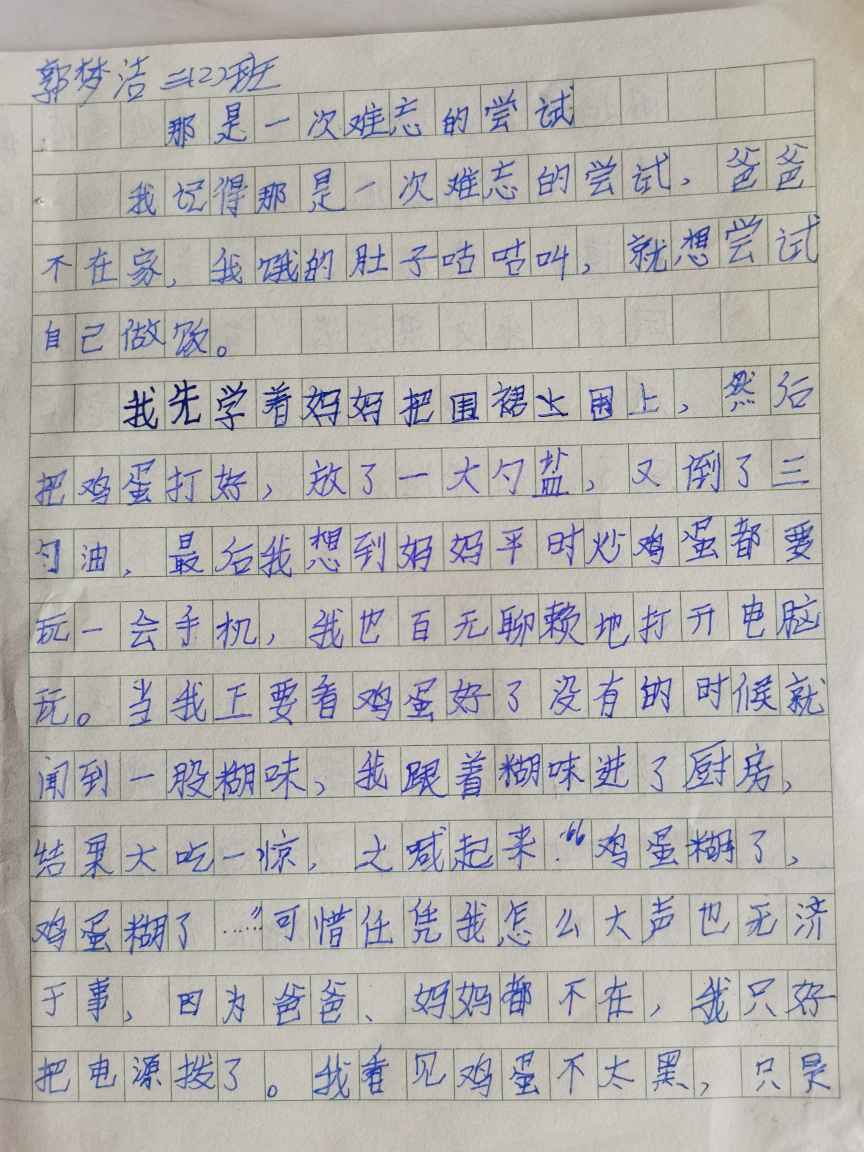 郭梦洁 三(2)班
那是一次难忘的尝试
我记得那是一次难忘的尝试，爸爸
不在家，我饿的肚子咕咕叫，就想尝试
自己做饭。
我先学着妈妈把围裙围上，然后
把鸡蛋打好，放了一大勺盐，又倒了三
勺油，最后我想到妈妈平时炒鸡蛋都要
玩一会手机，我也百无聊赖地打开电脑
玩。当我正要看鸡蛋好了没有的时候就
闻到一股糊味，我跟着糊味进了厨房，
结果大吃一惊，大喊起来：“鸡蛋糊了，
鸡蛋糊了……”可惜任凭我怎么大声也无济
于事，因为爸爸、妈妈都不在，我只好
把电源拨了。我看见鸡蛋不太黑，只是